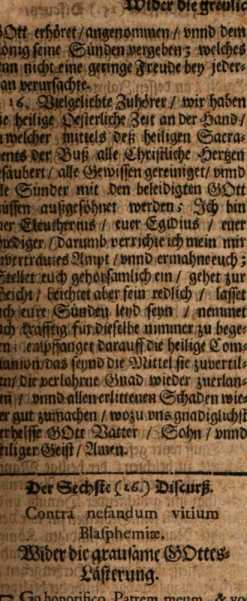 Wider die greulic
GOtt erhöret/angenommen/ vnnd dem
önig seine Sünden vergeben; welches
an nicht eine geringe Freude bey jeder-
an verursachte.
16. Vielgeliebte Zuhörer / wir haben
ie heilige Oesterliche Zeit an der Hand/
welcher mittels deß heiligen Sacra-
ents der Buß alle Christliche Hertzen
säubert / alle Gewissen gereiniget/ vnnd
le Sünder mit den beleidigten GOtt
üssen außgesöhnet werden; Ich bin
er Eleutherius / euer Egidius / euer
rediger /darumb verrichte ich mein mir
nvertrautes Ampt / vnnd ermahne euch;
Stellet euch gehorsamlich ein / gehet zur
Beicht / beichtet aber fein redlich / lasset
ch eure Sünden leyd seyn / nemmet
ch kräfftig für dieselbe nimmer zu bege-
en; empfanget darauff die heilige Com-
union/das seynd die Mittel sie zuvertil-
en/ die verlohrne Gnad wieder zuerlan-
en / vnnd allen erlittenen Schaden wie-
er gut zumachen / wozu vns gnädiglichst
erhelffe GOtt Vatter / Sohn / vnnd
eiliger Geist / Amen.
Der Sechste (16.) Discurß.
Contra nefandum vitium
Blasphemiæ.
Wider die grausame GOttes-
Lästerung.
Go honorifico Patrem meum, & vo